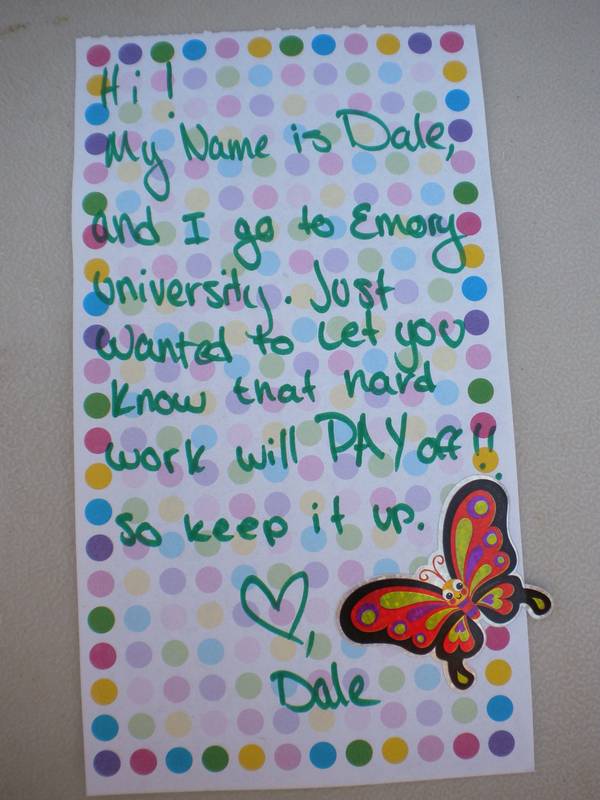 Hi!
My Name is Dale,
and I go to Emory
University. Just
wanted to let you
know that hard
work will PAY off!!
so keep it up.
♡,
Dale